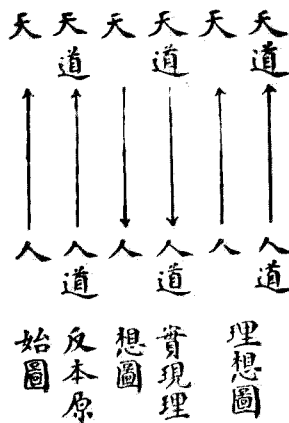 天道
人道
天
人
理想圖
天道
人道
天
人
實現理
想圖
天道
人道
天
人
反本原
始圖